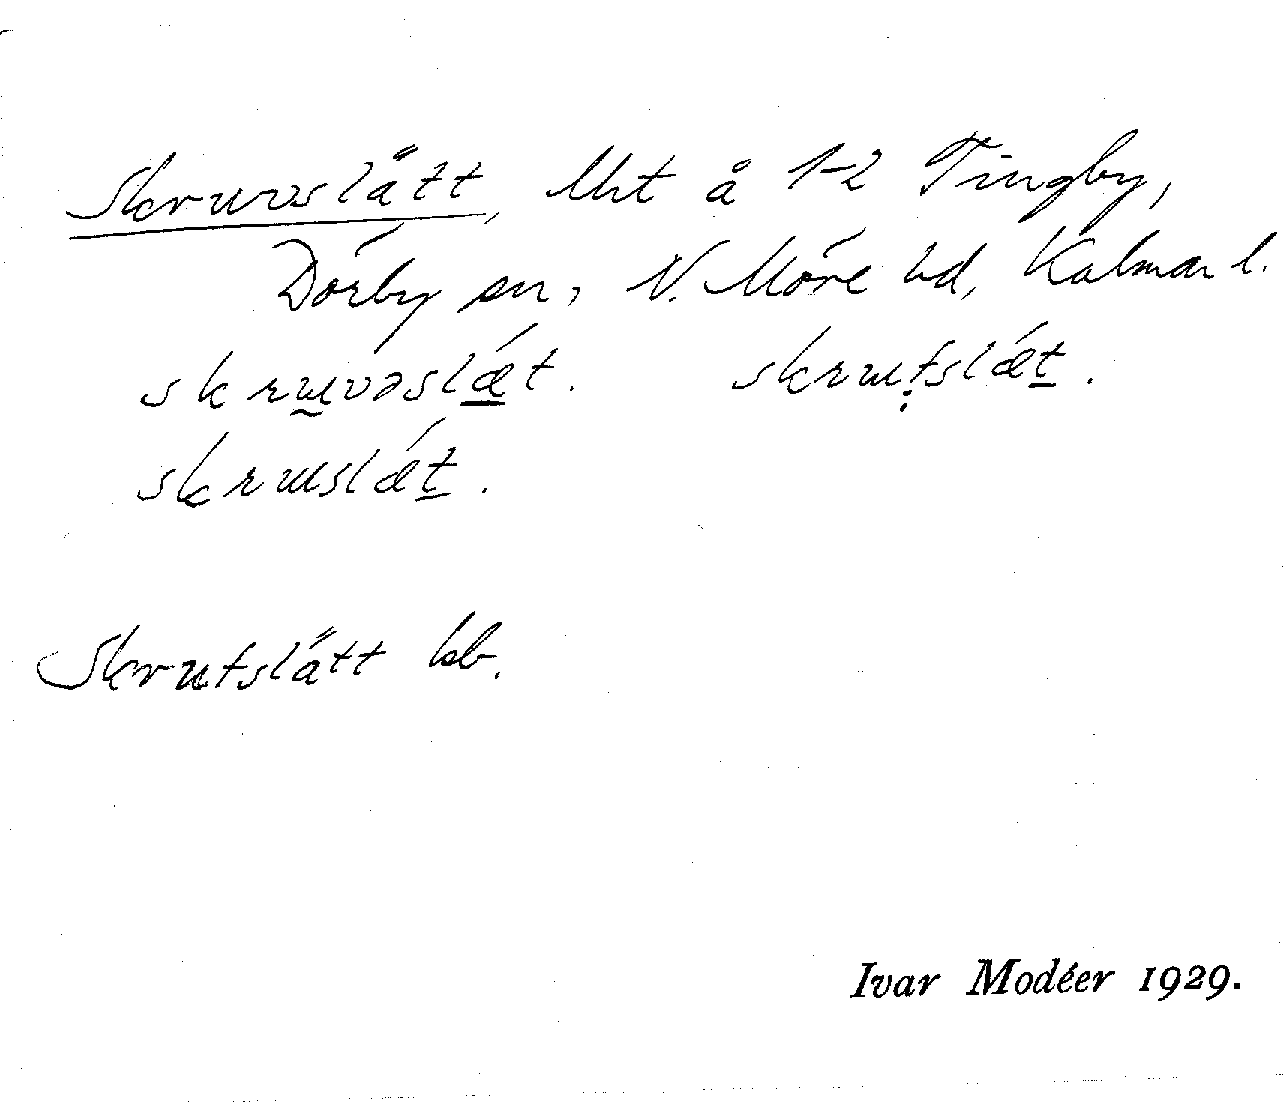 Skruvslätt, Lht å 1-2 Tingby,
Dörby sn, N. Möre hd, Kalmar l.
skruvəslæt. skrutslæt.
skruslæt.
Skrutslätt kb.
Ivar Modéer 1929.